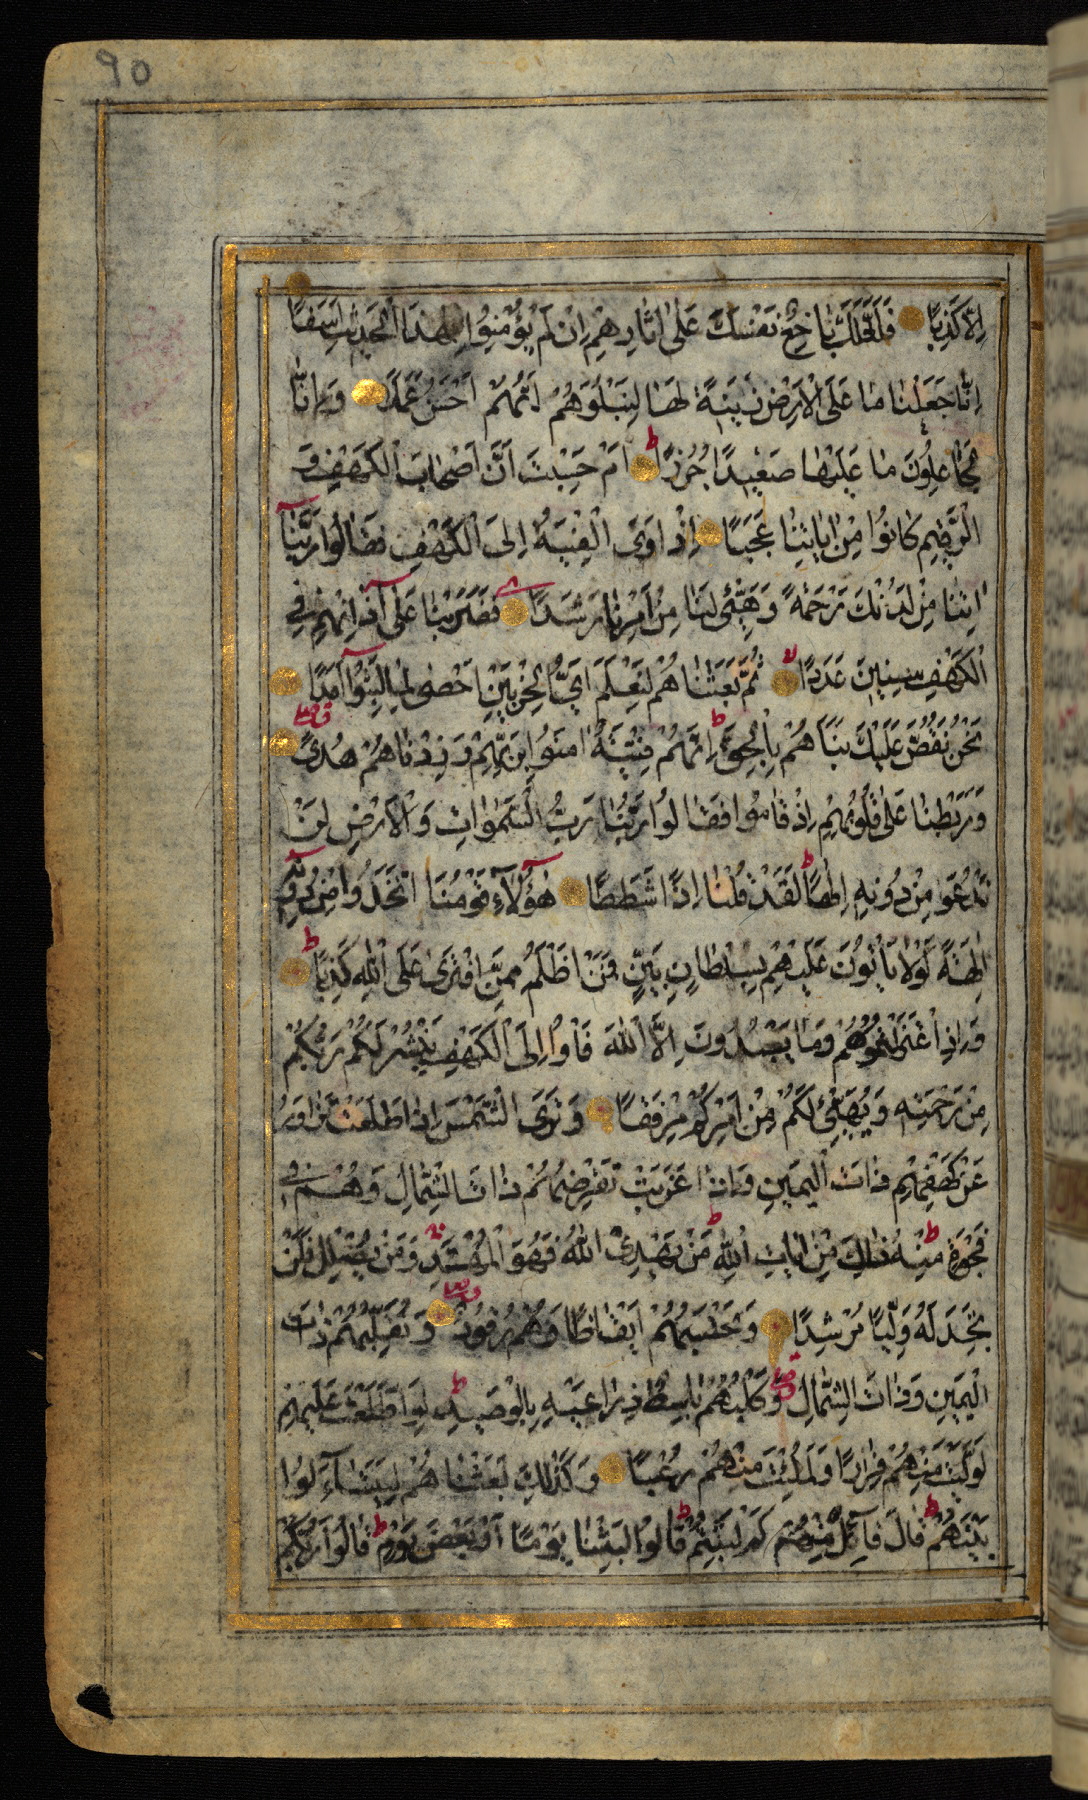 90
اِلّٰا كَذِبًا فَلَعَلَّكَ بَاخِعٌ نَفْسَكَ عَلٰى اٰثٰارِهِمْ اِنْ لَمْ يُؤْمِنُوا بِهٰذَا الْحَدِيثِ اَسَفًا
اِنّٰا جَعَلْنٰا مٰا عَلَى الْاَرْضِ زِينَةً لَهٰا لِنَبْلُوَهُمْ اَيُّهُمْ اَحْسَنُ عَمَلًا وَاِنّٰا
لَجٰاعِلُونَ مٰا عَلَيْهٰا صَعِيدًا جُرُزًا ط اَمْ حَسِبْتَ اَنَّ اَصْحٰابَ الْكَهْفِ وَ
الرَّقِيمِ كٰانُوا مِنْ اٰيٰاتِنٰا عَجَبًا اِذْ اَوَى الْفِتْيَةُ اِلَى الْكَهْفِ فَقٰالُوا رَبَّنٰآ
اٰتِنٰا مِنْ لَدُنْكَ رَحْمَةً وَهَيِّئْ لَنٰا مِنْ اَمْرِنٰا رَشَدًا فَضَرَبْنٰا عَلٰٓى اٰذٰانِهِمْ فِي
الْكَهْفِ سِنِينَ عَدَدًا لا ثُمَّ بَعَثْنٰاهُمْ لِنَعْلَمَ اَيُّ الْحِزْبَيْنِ اَحْصٰى لِمٰا لَبِثُوٓا اَمَدًا
نَحْنُ نَقُصُّ عَلَيْكَ نَبَاَهُمْ بِالْحَقِّ ط اِنَّهُمْ فِتْيَةٌ اٰمَنُوا بِرَبِّهِمْ وَزِدْنٰاهُمْ هُدًى
وَرَبَطْنٰا عَلٰى قُلُوبِهِمْ اِذْ قٰامُوا فَقٰالُوا رَبُّنٰا رَبُّ السَّمٰوٰاتِ وَالْاَرْضِ لَنْ
نَدْعُوَا مِنْ دُونِهِ اِلٰهًا ط لَقَدْ قُلْنٰا اِذًا شَطَطًا هٰٓؤُلٰآءِ قَوْمُنَا اتَّخَذُوا مِنْ دُونِهِٓ
اٰلِهَةً لَوْلٰا يَاْتُونَ عَلَيْهِمْ بِسُلْطٰانٍ بَيِّنٍ فَمَنْ اَظْلَمُ مِمَّنِ افْتَرٰى عَلَى اللّٰهِ كَذِبًا ط
وَاِذِ اعْتَزَلْتُمُوهُمْ وَمٰا يَعْبُدُونَ اِلَّا اللّٰهَ فَاْوُا اِلَى الْكَهْفِ يَنْشُرْ لَكُمْ رَبُّكُمْ
مِنْ رَحْمَتِهِ وَيُهَيِّئْ لَكُمْ مِنْ اَمْرِكُمْ مِرْفَقًا وَتَرَى الشَّمْسَ اِذٰا طَلَعَتْ تَزٰاوَرُ
عَنْ كَهْفِهِمْ ذٰاتَ الْيَمِينِ وَاِذٰا غَرَبَتْ تَقْرِضُهُمْ ذٰاتَ الشِّمٰالِ وَهُمْ فِي
فَجْوَةٍ مِنْهُ ط ذٰلِكَ مِنْ اٰيٰاتِ اللّٰهِ ط مَنْ يَهْدِي اللّٰهُ فَهُوَ الْمُهْتَدِ وَمَنْ يُضْلِلْ فَلَنْ
تَجِدَ لَهُ وَلِيًّا مُرْشِدًا وَتَحْسَبُهُمْ اَيْقٰاظًا وَهُمْ رُقُودٌ وَنُقَلِّبُهُمْ ذٰاتَ
الْيَمِينِ وَذٰاتَ الشِّمٰالِ وَكَلْبُهُمْ بٰاسِطٌ ذِرٰاعَيْهِ بِالْوَصِيدِ ط لَوِ اطَّلَعْتَ عَلَيْهِمْ
لَوَلَّيْتَ مِنْهُمْ فِرٰارًا وَلَمُلِئْتَ مِنْهُمْ رُعْبًا وَكَذٰلِكَ بَعَثْنٰاهُمْ لِيَتَسٰآءَلُوا
بَيْنَهُمْ ط قٰالَ قٰآئِلٌ مِنْهُمْ كَمْ لَبِثْتُمْ ط قٰالُوا لَبِثْنٰا يَوْمًا اَوْ بَعْضَ يَوْمٍ ط قٰالُوا رَبُّكُمْ